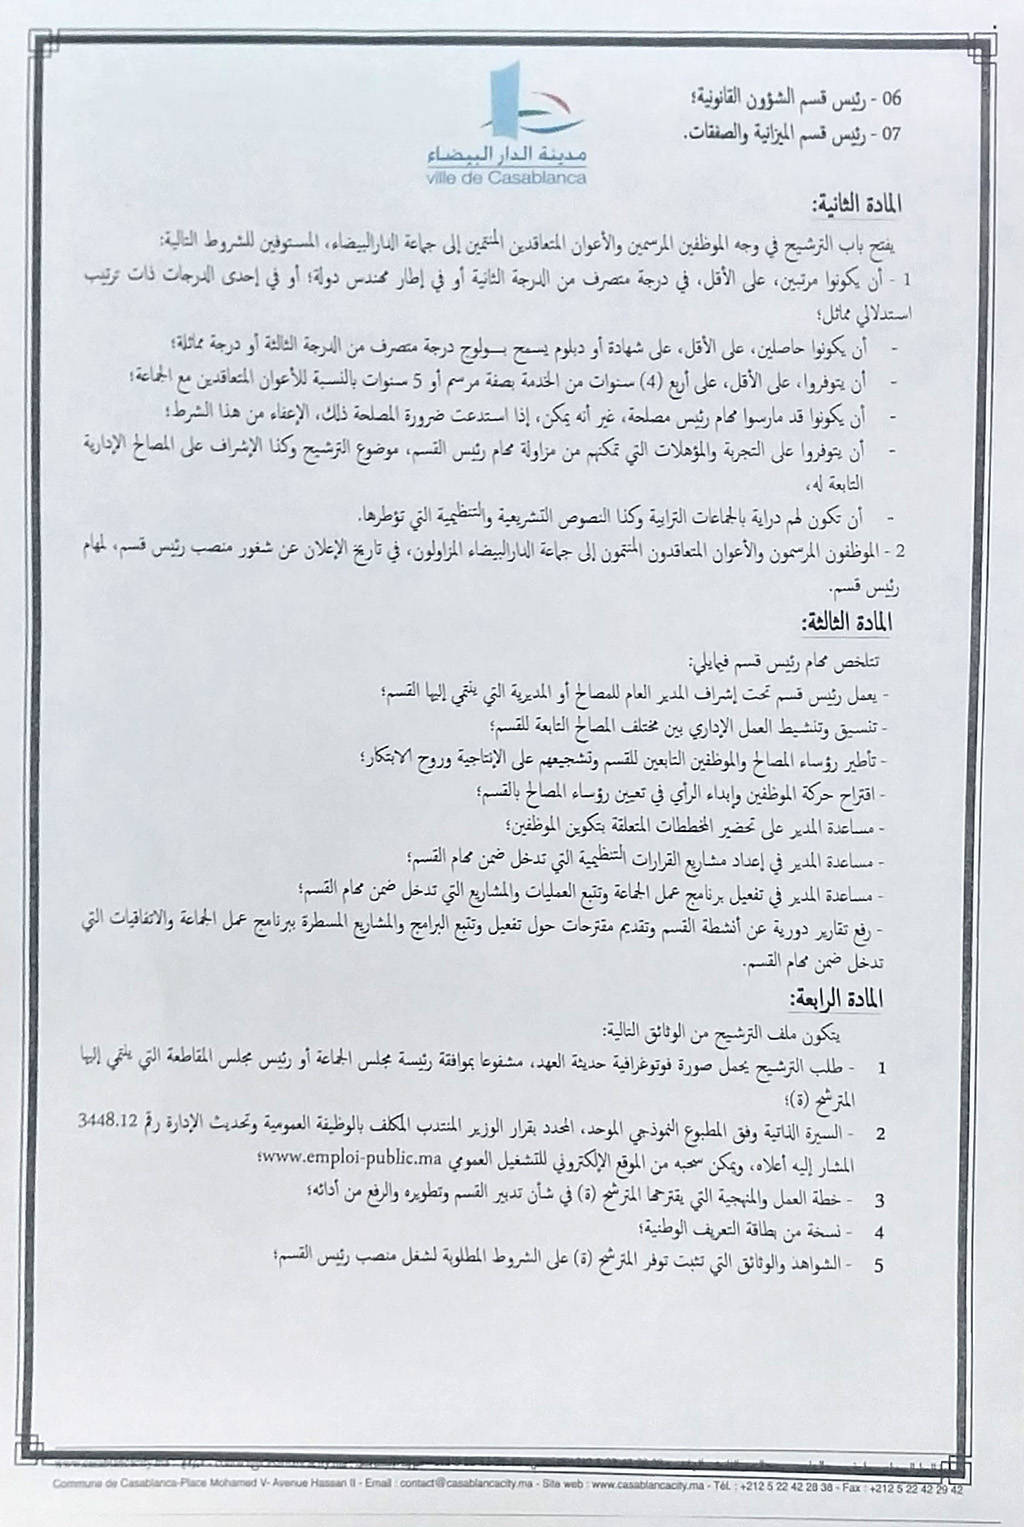 06 - رئيس قسم الشؤون القانونية؛
07 - رئيس قسم الميزانية والصفقات.
مدينة الدار البيضاء
ville de Casablanca
المادة الثانية:
يفتح باب الترشيح في وجه الموظفين المرسمين والأعوان المتعاقدين المنتمين إلى جماعة الدارالبيضاء، المستوفين للشروط التالية:
1 - أن يكونوا مرتبين، على الأقل، في درجة متصرف من الدرجة الثانية أو في إطار مهندس دولة؛ أو في إحدى الدرجات ذات ترتيب
استدلالي مماثل؛
- أن يكونوا حاصلين، على الأقل، على شهادة أو دبلوم يسمح بولوج درجة متصرف من الدرجة الثالثة أو درجة مماثلة؛
- أن يتوفروا، على الأقل، على أربع (4) سنوات من الخدمة بصفة مرسم أو 5 سنوات بالنسبة للأعوان المتعاقدين مع الجماعة؛
- أن يكونوا قد مارسوا مهام رئيس مصلحة، غير أنه يمكن، إذا استدعت ضرورة المصلحة ذلك، الإعفاء من هذا الشرط؛
- أن يتوفروا على التجربة والمؤهلات التي تمكنهم من مزاولة مهام رئيس القسم، موضوع الترشيح وكذا الإشراف على المصالح الإدارية
التابعة له،
- أن تكون لهم دراية بالجماعات الترابية وكذا النصوص التشريعية والتنظيمية التي تؤطرها.
2 - الموظفون المرسمون والأعوان المتعاقدون المنتمون إلى جماعة الدارالبيضاء المزاولون، في تاريخ الإعلان عن شغور منصب رئيس قسم، لمهام
رئيس قسم.
المادة الثالثة:
تتلخص مهام رئيس قسم فيمايلي:
- يعمل رئيس قسم تحت إشراف المدير العام للمصالح أو المديرية التي ينتمي إليها القسم؛
- تنسيق وتنشيط العمل الإداري بين مختلف المصالح التابعة للقسم؛
- تأطير رؤساء المصالح والموظفين التابعين للقسم وتشجيعهم على الإنتاجية وروح الابتكار؛
- اقتراح حركة الموظفين وإبداء الرأي في تعيين رؤساء المصالح بالقسم؛
- مساعدة المدير على تحضير المخططات المتعلقة بتكوين الموظفين؛
- مساعدة المدير في إعداد مشاريع القرارات التنظيمية التي تدخل ضمن مهام القسم؛
- مساعدة المدير في تفعيل برنامج عمل الجماعة وتتبع العمليات والمشاريع التي تدخل ضمن مهام القسم؛
- رفع تقارير دورية عن أنشطة القسم وتقديم مقترحات حول تفعيل وتتبع البرامج والمشاريع المسطرة ببرنامج عمل الجماعة والاتفاقيات التي
تدخل ضمن مهام القسم.
المادة الرابعة:
يتكون ملف الترشيح من الوثائق التالية:
1 - طلب الترشيح يحمل صورة فوتوغرافية حديثة العهد، مشفوعا بموافقة رئيسة مجلس الجماعة أو رئيس مجلس المقاطعة التي ينتمي إليها
المترشح (ة)؛
2 - السيرة الذاتية وفق المطبوع النموذجي الموحد، المحدد بقرار الوزير المنتدب المكلف بالوظيفة العمومية وتحديث الإدارة رقم 3448.12
المشار إليه أعلاه، ويمكن سحبه من الموقع الإلكتروني للتشغيل العمومي www.emploi-public.ma؛
3 - خطة العمل والمنهجية التي يقترحها المترشح (ة) في شأن تدبير القسم وتطويره والرفع من أدائه؛
4 - نسخة من بطاقة التعريف الوطنية؛
5 - الشواهد والوثائق التي تثبت توفر المترشح (ة) على الشروط المطلوبة لشغل منصب رئيس القسم؛
Commune de Casablanca-Place Mohamed V- Avenue Hassan II - Email : contact@casablancacity.ma - Site web : www.casablancacity.ma - Tél. : +212 5 22 42 28 38 - Fax : +212 5 22 42 29 42